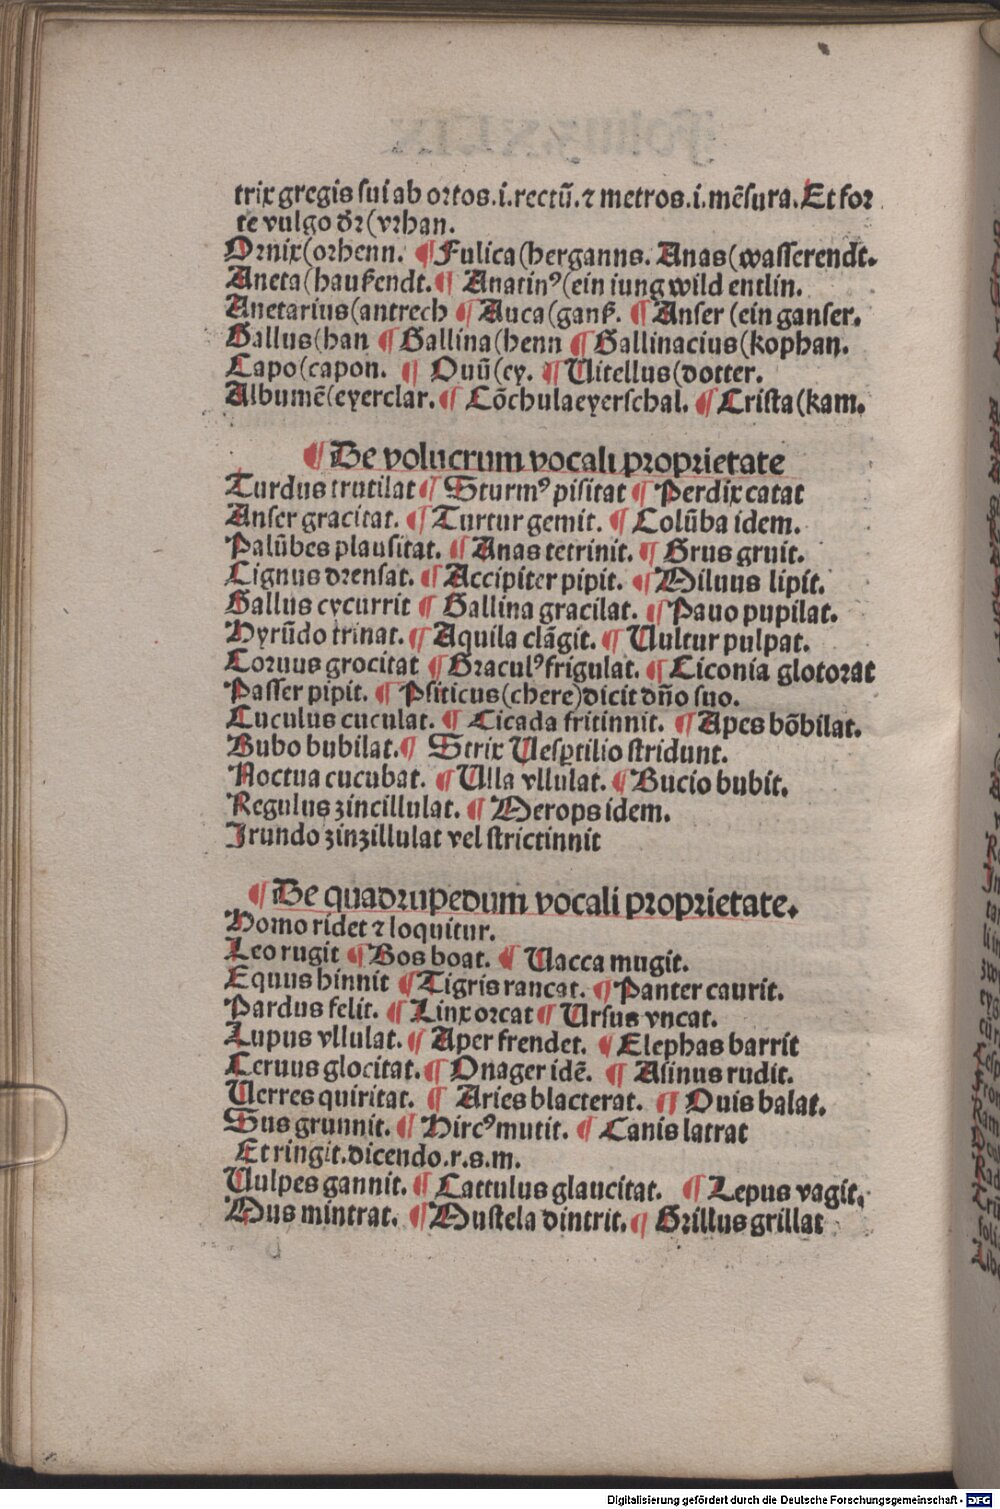 trix gregis sui ab ortos.i.rectū.⁊ metros.i.mēsura. Et for
te vulgo dr̄(vrhan.
Ornix(orhenn. ¶ Fulica(herganns. Anas(wasserendt.
Aneta(haußendt. ¶ Anatinꝰ(ein iung wild entlin.
Anetarius(antrech ¶ Auca(ganß. ¶ Anser (ein ganser.
Gallus(han ¶ Gallina(henn ¶ Gallinacius(kophan.
Capo(capon. ¶ Ouū(ey. ¶ Uitellus(dotter.
Albumē(eyerclar. ¶ Cōchulaeyerschal. ¶ Crista(kam.
¶ De volucrum vocali proprietate
Turdus trutilat ¶ Sturmꝰ pisitat ¶ Perdix catat
Anser gracitat. ¶ Turtur gemit. ¶ Colūba idem.
Palūbes plausitat. ¶ Anas tetrinit. ¶ Grus gruit.
Cignus drensat. ¶ Accipiter pipit. ¶ Miluus lipit.
Gallus cycurrit ¶ Gallina gracilat. ¶ Pauo pupilat.
Hyrūdo trinat. ¶ Aquila clāgit. ¶ Uultur pulpat.
Coruus grocitat ¶ Graculꝰ frigulat. ¶ Ciconia glotorat
Passer pipit. ¶ Psiticus(chere)dicit dño suo.
Cuculus cuculat. ¶ Cicada fritinnit. ¶ Apes bōbilat.
Bubo bubilat. ¶ Strix Uesꝑtilio stridunt.
Noctua cucubat. ¶ Ulla vllulat. ¶ Bucio bubit.
Regulus zincillulat. ¶ Merops idem.
Irundo zinzillulat vel strictinnit
¶ De quadrupedum vocali proprietate.
Homo ridet ⁊ loquitur.
Leo rugit ¶ Bos boat. ¶ Uacca mugit.
Equus hinnit ¶ Tigris rancat. ¶ Panter caurit.
Pardus felit. ¶ Linx orcat ¶ Ursus vncat.
Lupus vllulat. ¶ Aper frendet. ¶ Elephas barrit
Ceruus glocitat. ¶ Onager idē. ¶ Asinus rudit.
Uerres quiritat. ¶ Aries blacterat. ¶ Ouis balat.
Sus grunnit. ¶ Hircꝰ mutit. ¶ Canis latrat
Et ringit.dicendo.r.s.m.
Uulpes gannit. ¶ Cattulus glaucitat. ¶ Lepus vagit.
Mus mintrat. ¶ Mustela dintrit. ¶ Grillus grillat
Digitalisierung gefördert durch die Deutsche Forschungsgemeinschaft - DFG